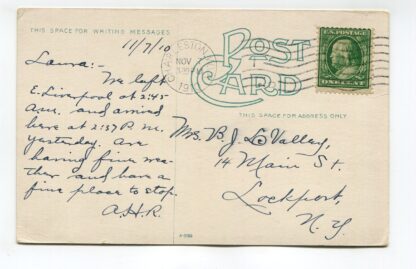 THIS SPACE FOR WRITING MESSAGES
11/7/10
Laura:-
We left
E. Liverpool at 2:45
A.M. and arrived
here at 2:37 P.M.
yesterday. Are
having fine wea-
ther and have a
fine place to stop.
A.H.R.
NOV
POST
CARD
U.S. POSTAGE
ONE CENT
THIS SPACE FOR ADDRESS ONLY
Mrs. B. J. LeValley,
14 Main St.
Lockport,
N.Y.